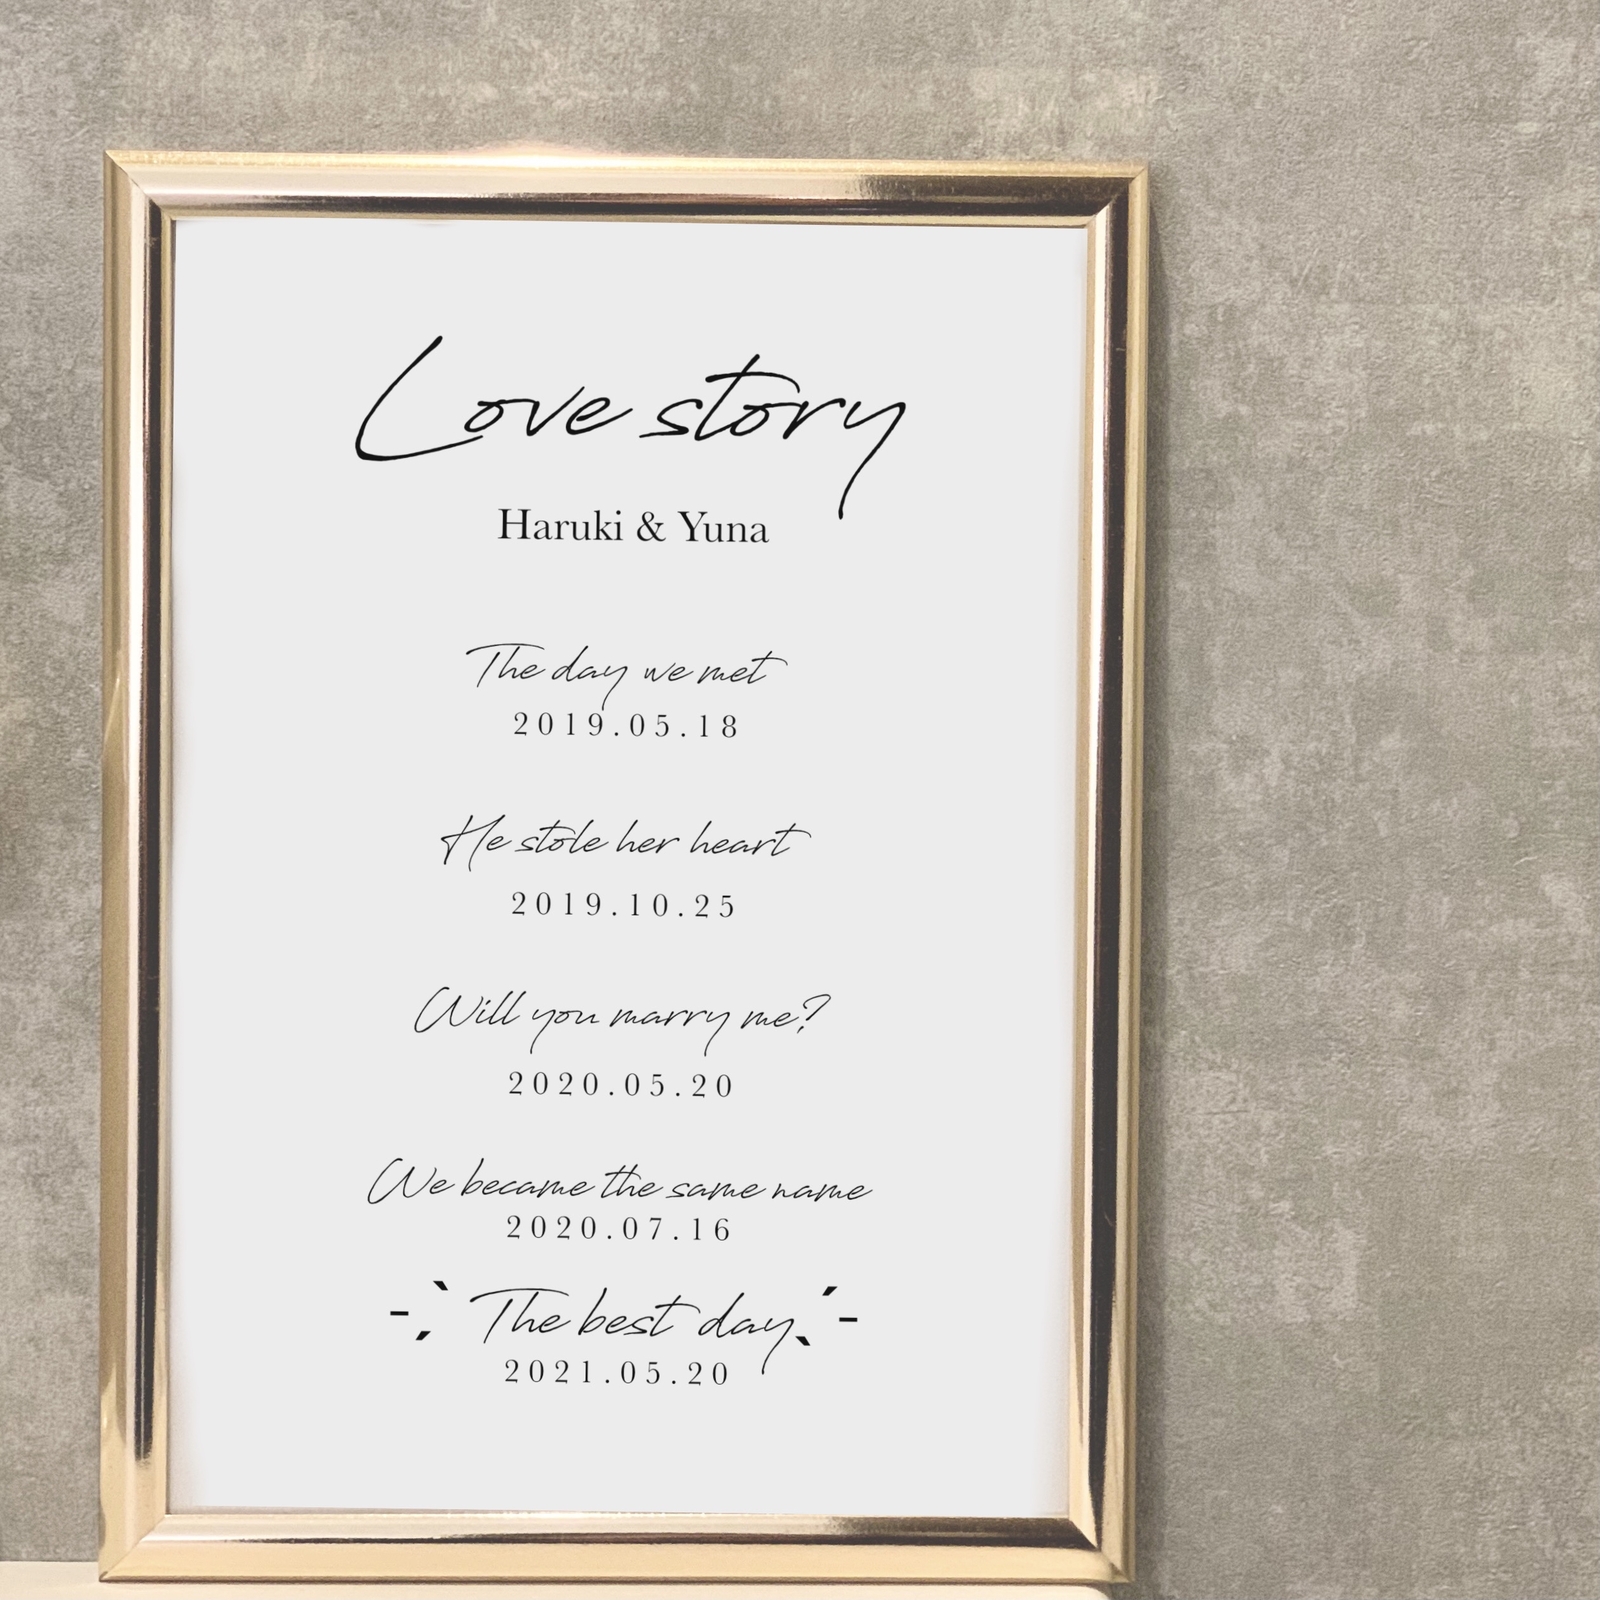 Love story
Haruki & Yuna
The day we met
2019.05.18
He stole her heart
2019.10.25
Will you marry me?
2020.05.20
We became the same name
2020.07.16
The best day
2021.05.20